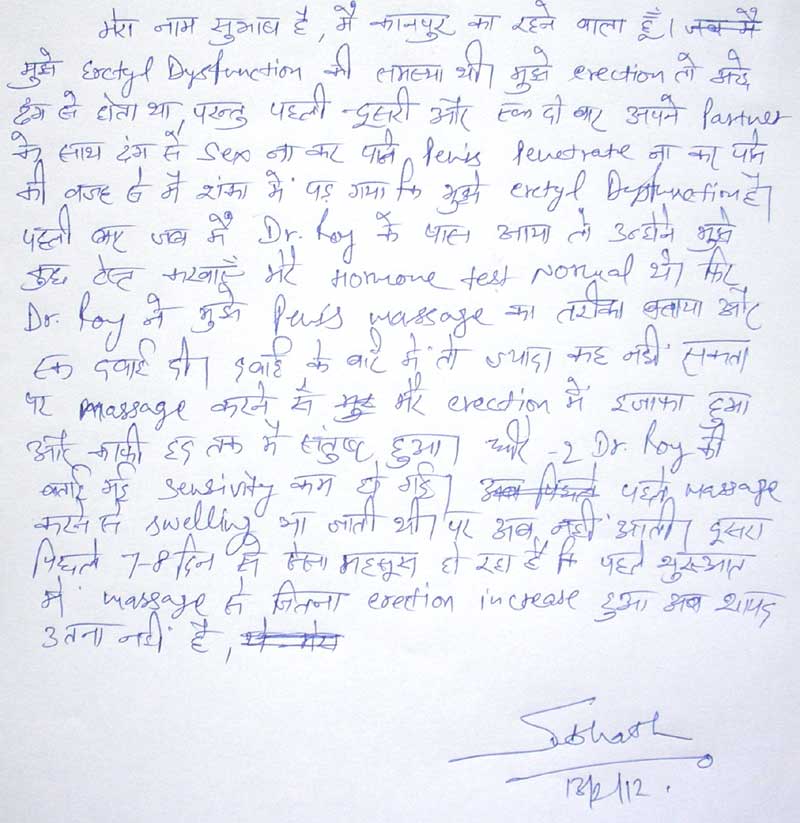 मेरा नाम सुभाष है, मैं कानपुर का रहने वाला हूँ। जब मैं
मुझे Erctyl Dysfunction की समस्या थी। मुझे erection तो अच्छे
ढंग से होता था, परन्तु पहली दूसरी और एक दो बार अपने Partner
के साथ ढंग से Sex ना कर पाने Penis Penetrate ना कर पाने
की वजह से मैं शंका में पड़ गया कि मुझे erctyl Dysfunction है।
पहली बार जब मैं Dr. Roy के पास आया तो उन्होने मुझे
कुछ टेस्ट करवाएँ मेरे Hormone test Normal थे। फिर
Dr. Roy ने मुझे Penis massage का तरीका बताया और
एक दवाई दी। दवाई के बारे में तो ज्यादा कह नहीं सकता
पर massage करने से मेरे erection में इजाफा हुआ
और काफी हद तक मैं संतुष्ट हुआ। धीरे-2 Dr. Roy की
बताई गई Sensivity कम हो गई। अब पिछले पहले massage
करने से swelling आ जाती थी। पर अब नहीं आती। दूसरा
पिछले 7-8 दिन से ऐसा महसूस हो रहा है कि पहले शुरुआत
में massage से जितना erection increase हुआ अब शायद
उतना नहीं है,
Subhash
13/2/12.